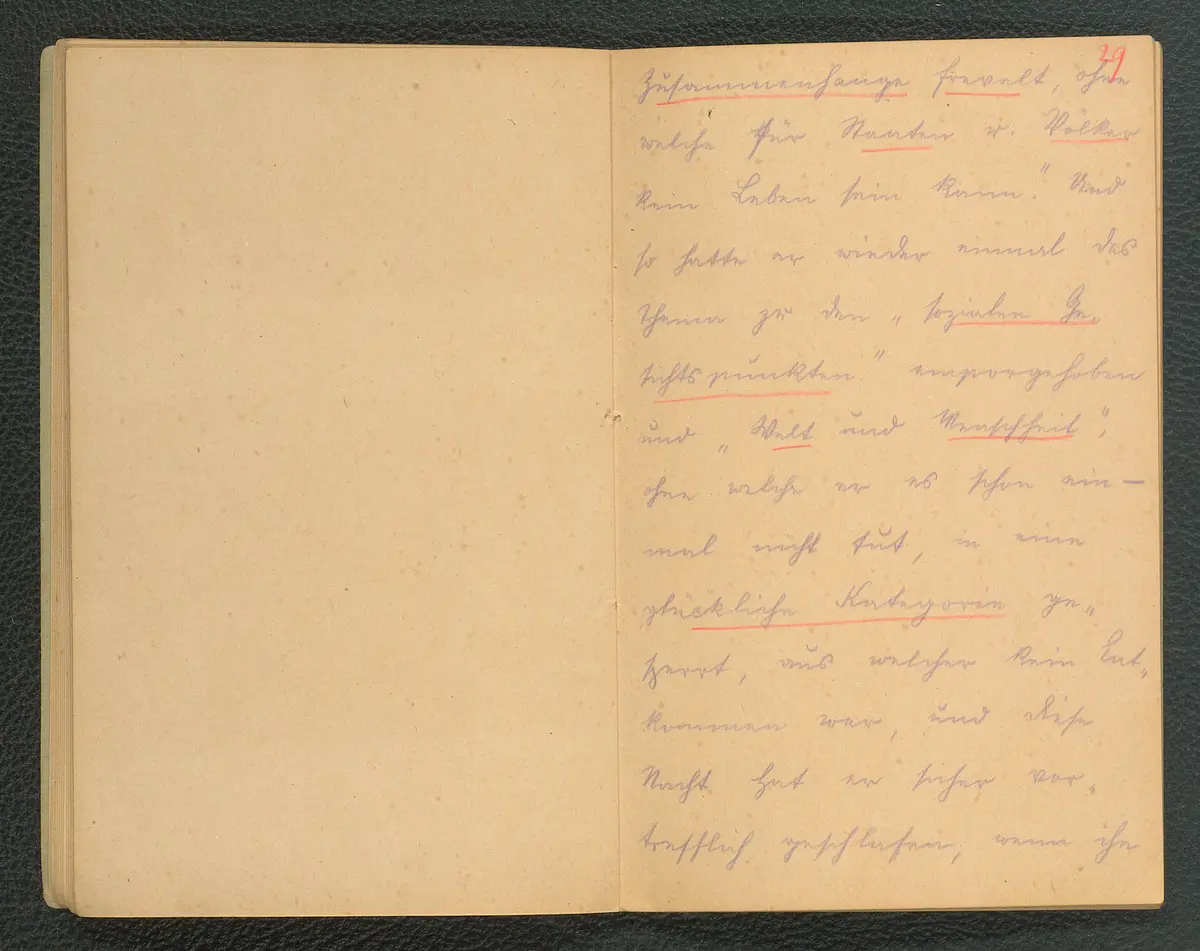 29
Zusammenhange frevelt, ohne
welche für Staaten u. Völker
kein Leben sein kann." Und
so hatte er wieder einmal das
Thema zu den „sozialen Ge-
sichtspunkten" emporgehoben
und „Welt und Menschheit",
ohne welche er es schon ein-
mal nicht tut, in eine
glückliche Kategorie ge-
sperrt, aus welcher kein Ent-
kommen war, und diese
Nacht hat er sicher vor-
trefflich geschlafen, wenn ihn